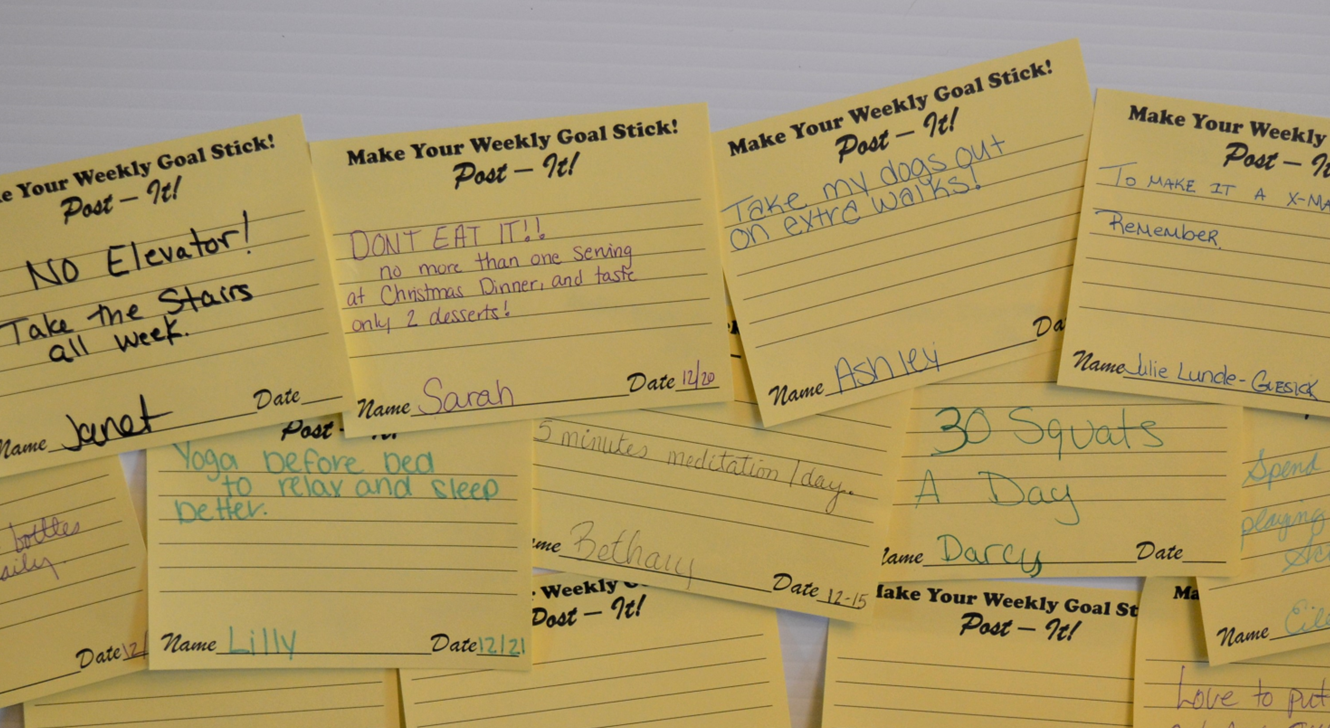 Your Weekly Goal Stick!
Post - It!
No Elevator!
Take the Stairs
all week.
Name Janet Date
Make Your Weekly Goal Stick!
Post - It!
DONT EAT IT!!
no more than one serving
at Christmas Dinner, and taste
only 2 desserts!
Name Sarah Date 12/20
Make Your Weekly Goal Stick!
Post - It!
Take my dogs out
on extra walks!
Name Ashley Da
Make Your Weekly
Post - It
To MAKE IT A X-MA
Remember
Name Julie Lunde-Guesick
bottles
aily.
Date 12/
Post - It!
Yoga before bed
to relax and sleep
better.
Name Lilly Date 12/21
5 minutes meditation/day.
ame Bethany Date 12-15
30 Squats
A Day
Name Darcy Date
Spend
playing
Name Eile
Weekly
Post - It!
Make Your Weekly Goal St
Post - It!
Ma
Love to put